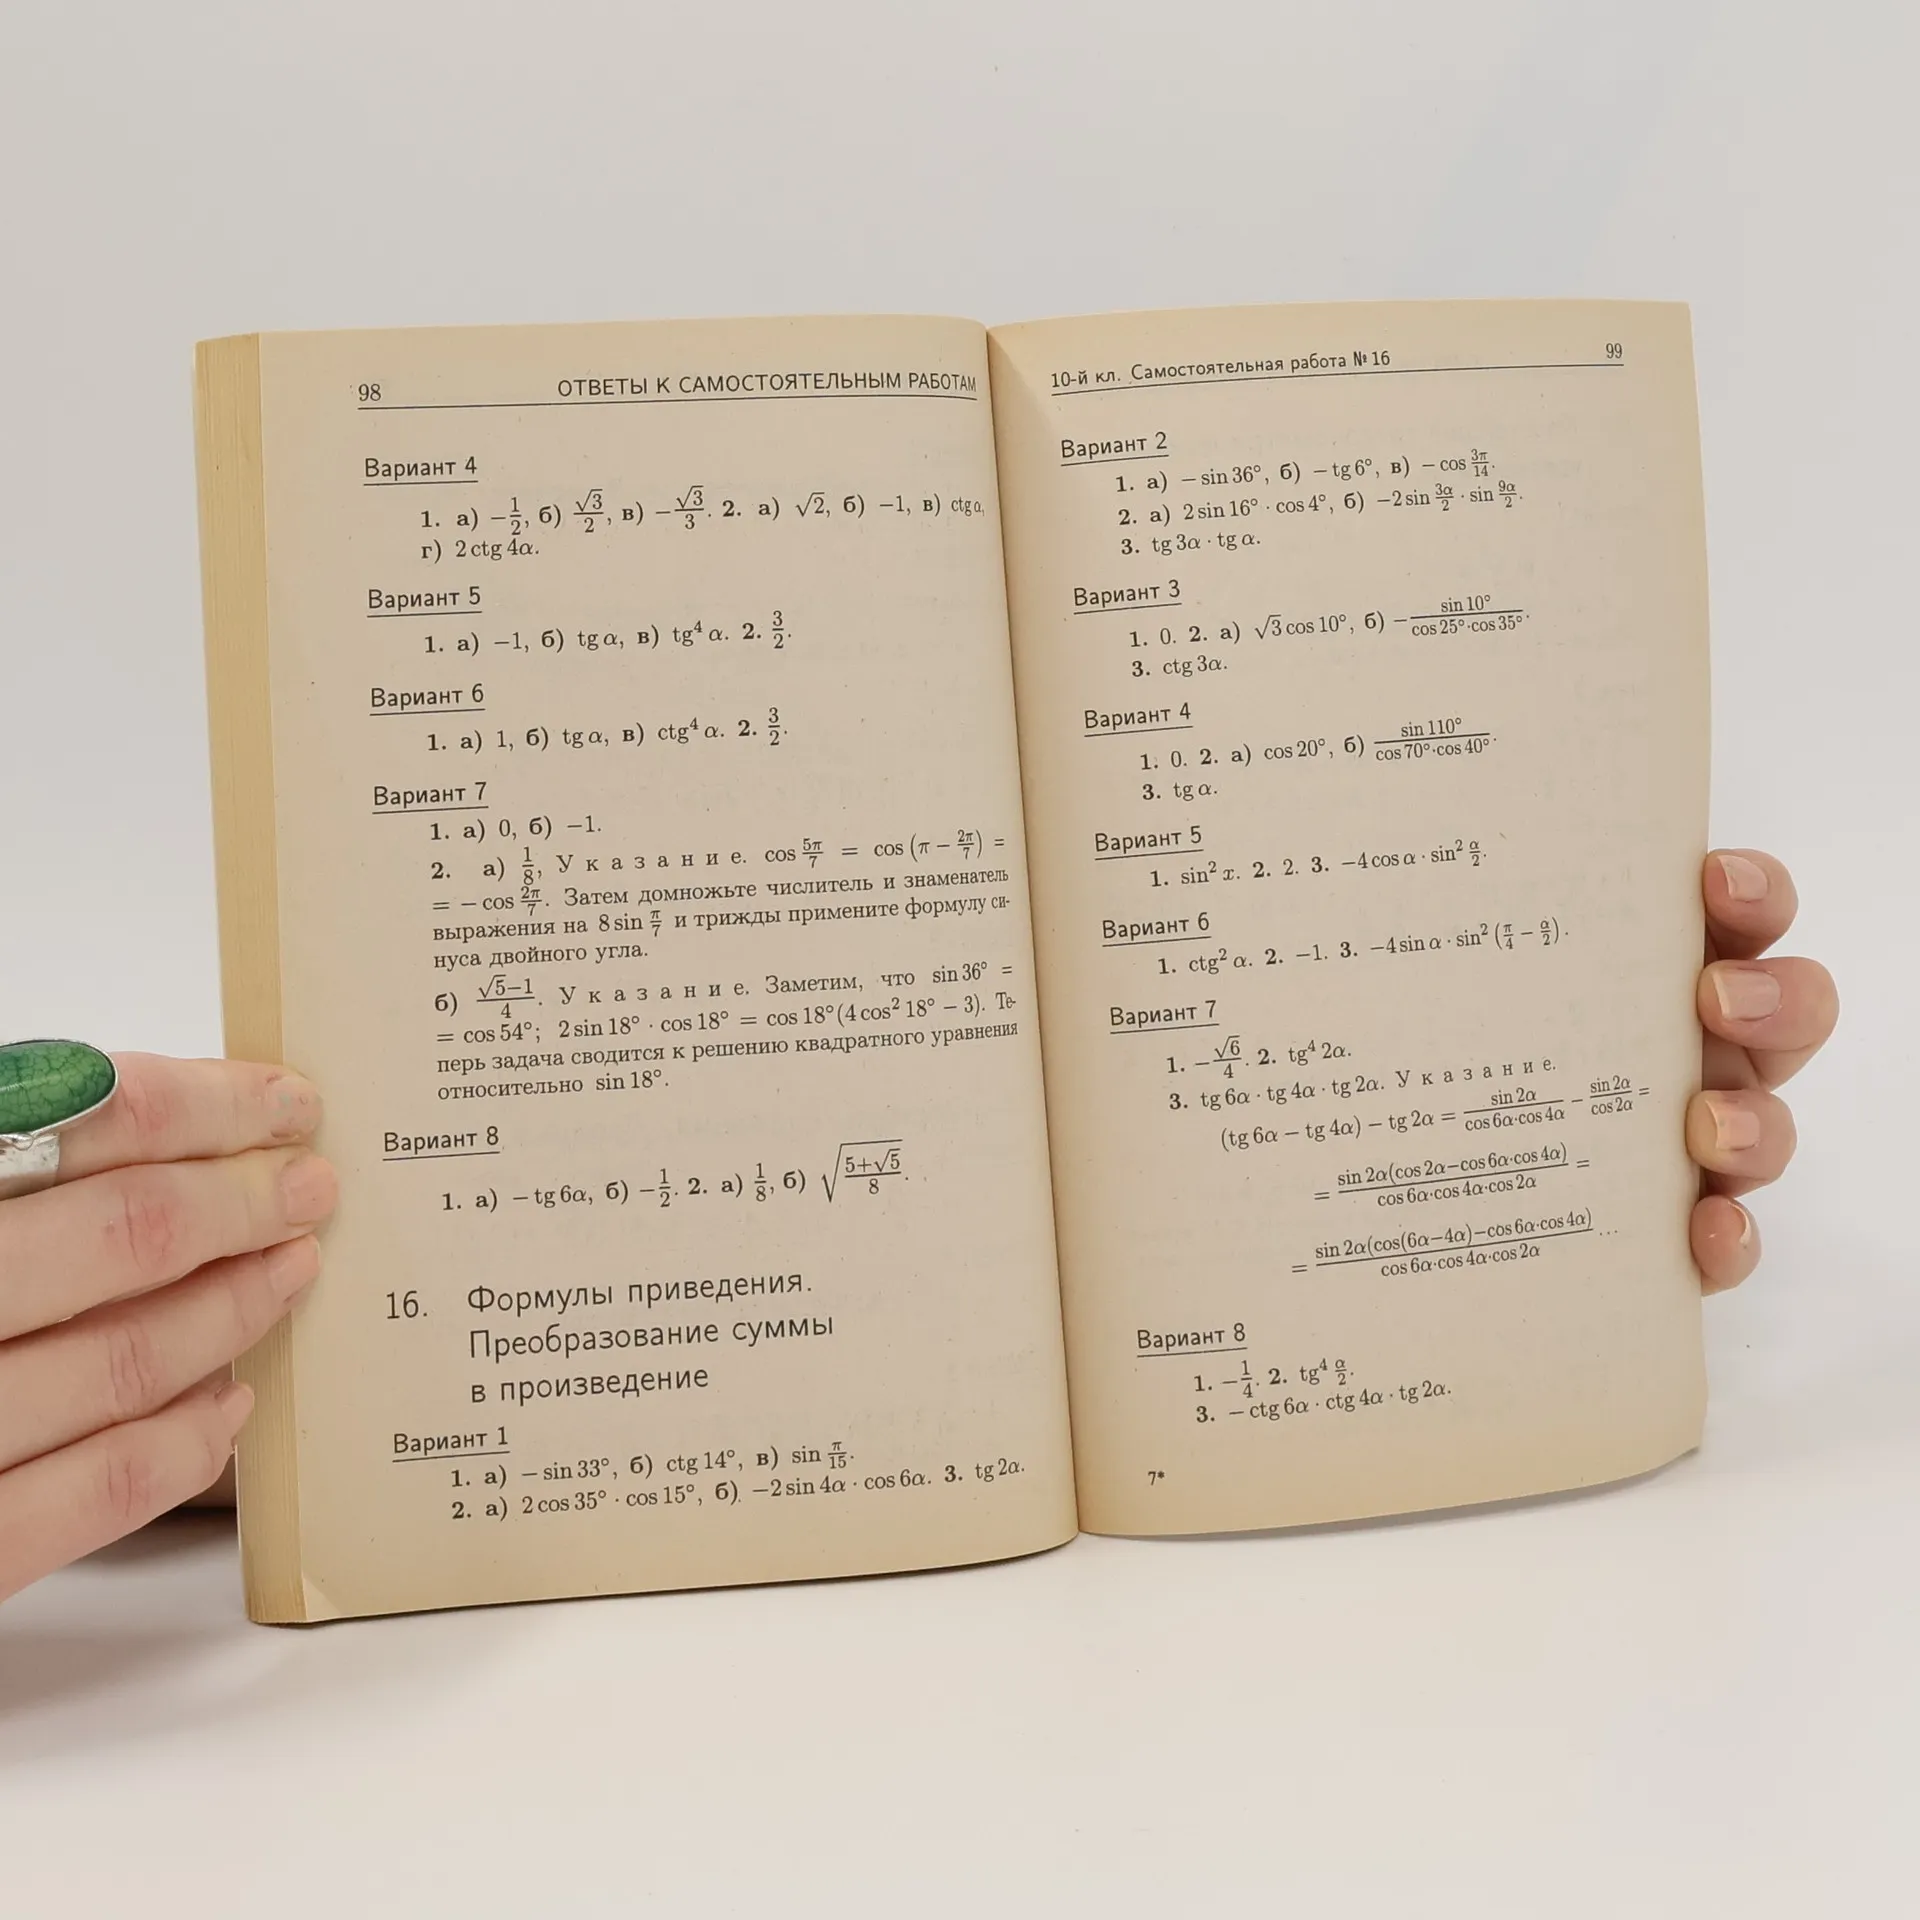 98 ОТВЕТЫ К САМОСТОЯТЕЛЬНЫМ РАБОТАМ
Вариант 4
1. а) −1/2, б) √3/2, в) −√3/3. 2. а) √2, б) −1, в) ctg α,
г) 2 ctg 4α.
Вариант 5
1. а) −1, б) tg α, в) tg⁴ α. 2. 3/2.
Вариант 6
1. а) 1, б) tg α, в) ctg⁴ α. 2. 3/2.
Вариант 7
1. а) 0, б) −1.
2. а) 1/8, Указание. cos 5π/7 = cos (π − 2π/7) =
= − cos 2π/7. Затем домножьте числитель и знаменатель
выражения на 8 sin π/7 и трижды примените формулу си-
нуса двойного угла.
б) (√5−1)/4. Указание. Заметим, что sin 36° =
= cos 54°; 2 sin 18° · cos 18° = cos 18°(4 cos² 18° − 3). Те-
перь задача сводится к решению квадратного уравнения
относительно sin 18°.
Вариант 8
1. а) − tg 6α, б) −1/2. 2. а) 1/8, б) √((5+√5)/8).
16. Формулы приведения.
Преобразование суммы
в произведение
Вариант 1
1. а) − sin 33°, б) ctg 14°, в) sin π/15.
2. а) 2 cos 35° · cos 15°, б) −2 sin 4α · cos 6α. 3. tg 2α.
10-й кл. Самостоятельная работа № 16 99
Вариант 2
1. а) − sin 36°, б) − tg 6°, в) − cos 3π/14.
2. а) 2 sin 16° · cos 4°, б) −2 sin 3α/2 · sin 9α/2.
3. tg 3α · tg α.
Вариант 3
1. 0. 2. а) √3 cos 10°, б) − sin 10°/(cos 25°·cos 35°).
3. ctg 3α.
Вариант 4
1. 0. 2. а) cos 20°, б) sin 110°/(cos 70°·cos 40°).
3. tg α.
Вариант 5
1. sin² x. 2. 2. 3. −4 cos α · sin² α/2.
Вариант 6
1. ctg² α. 2. −1. 3. −4 sin α · sin² (π/4 − α/2).
Вариант 7
1. −√6/4. 2. tg⁴ 2α.
3. tg 6α · tg 4α · tg 2α. Указание.
(tg 6α − tg 4α) − tg 2α = sin 2α/(cos 6α·cos 4α) − sin 2α/cos 2α =
= sin 2α(cos 2α−cos 6α·cos 4α)/(cos 6α·cos 4α·cos 2α) =
= sin 2α(cos(6α−4α)−cos 6α·cos 4α)/(cos 6α·cos 4α·cos 2α) ...
Вариант 8
1. −1/4. 2. tg⁴ α/2.
3. − ctg 6α · ctg 4α · tg 2α.
7*